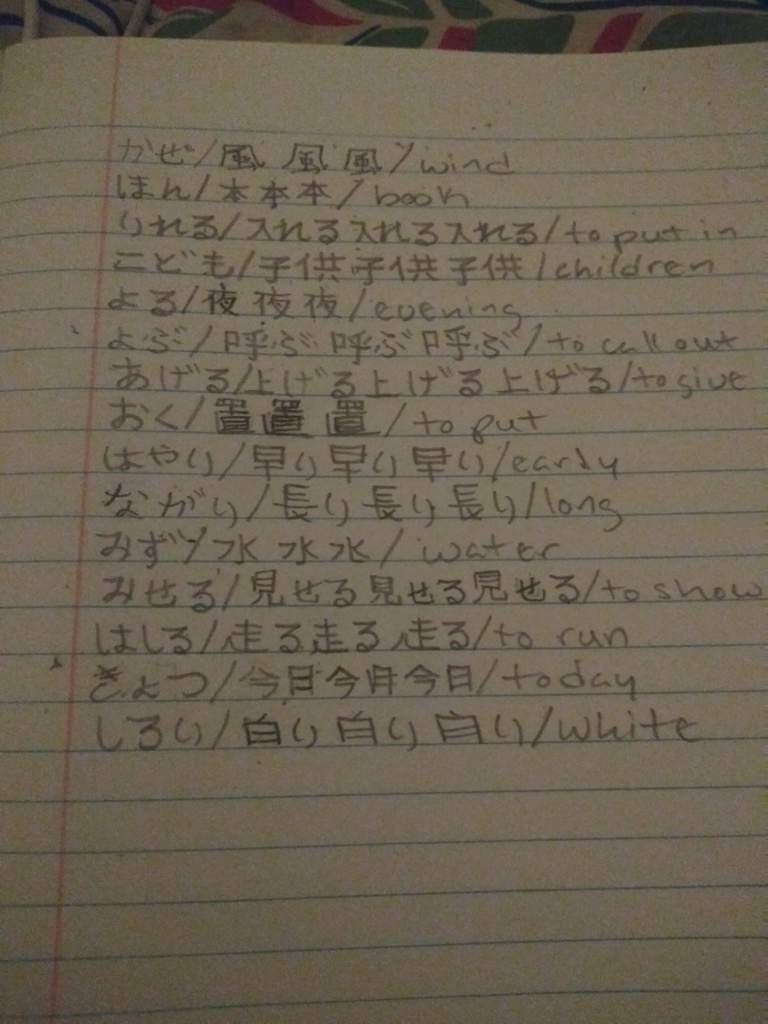 かぜ/風 風 風/wind
ほん/本本本/book
いれる/入れる入れる入れる/to put in
こども/子供子供子供/children
よる/夜夜夜/evening
よぶ/呼ぶ呼ぶ呼ぶ/to call out
あげる/上げる上げる上げる/to give
おく/置置置/to put
はやい/早い早い早い/early
ながい/長い長い長い/long
みず/水水水/water
みせる/見せる見せる見せる/to show
はしる/走る走る走る/to run
きょう/今日今日今日/today
しろい/白い白い白い/white